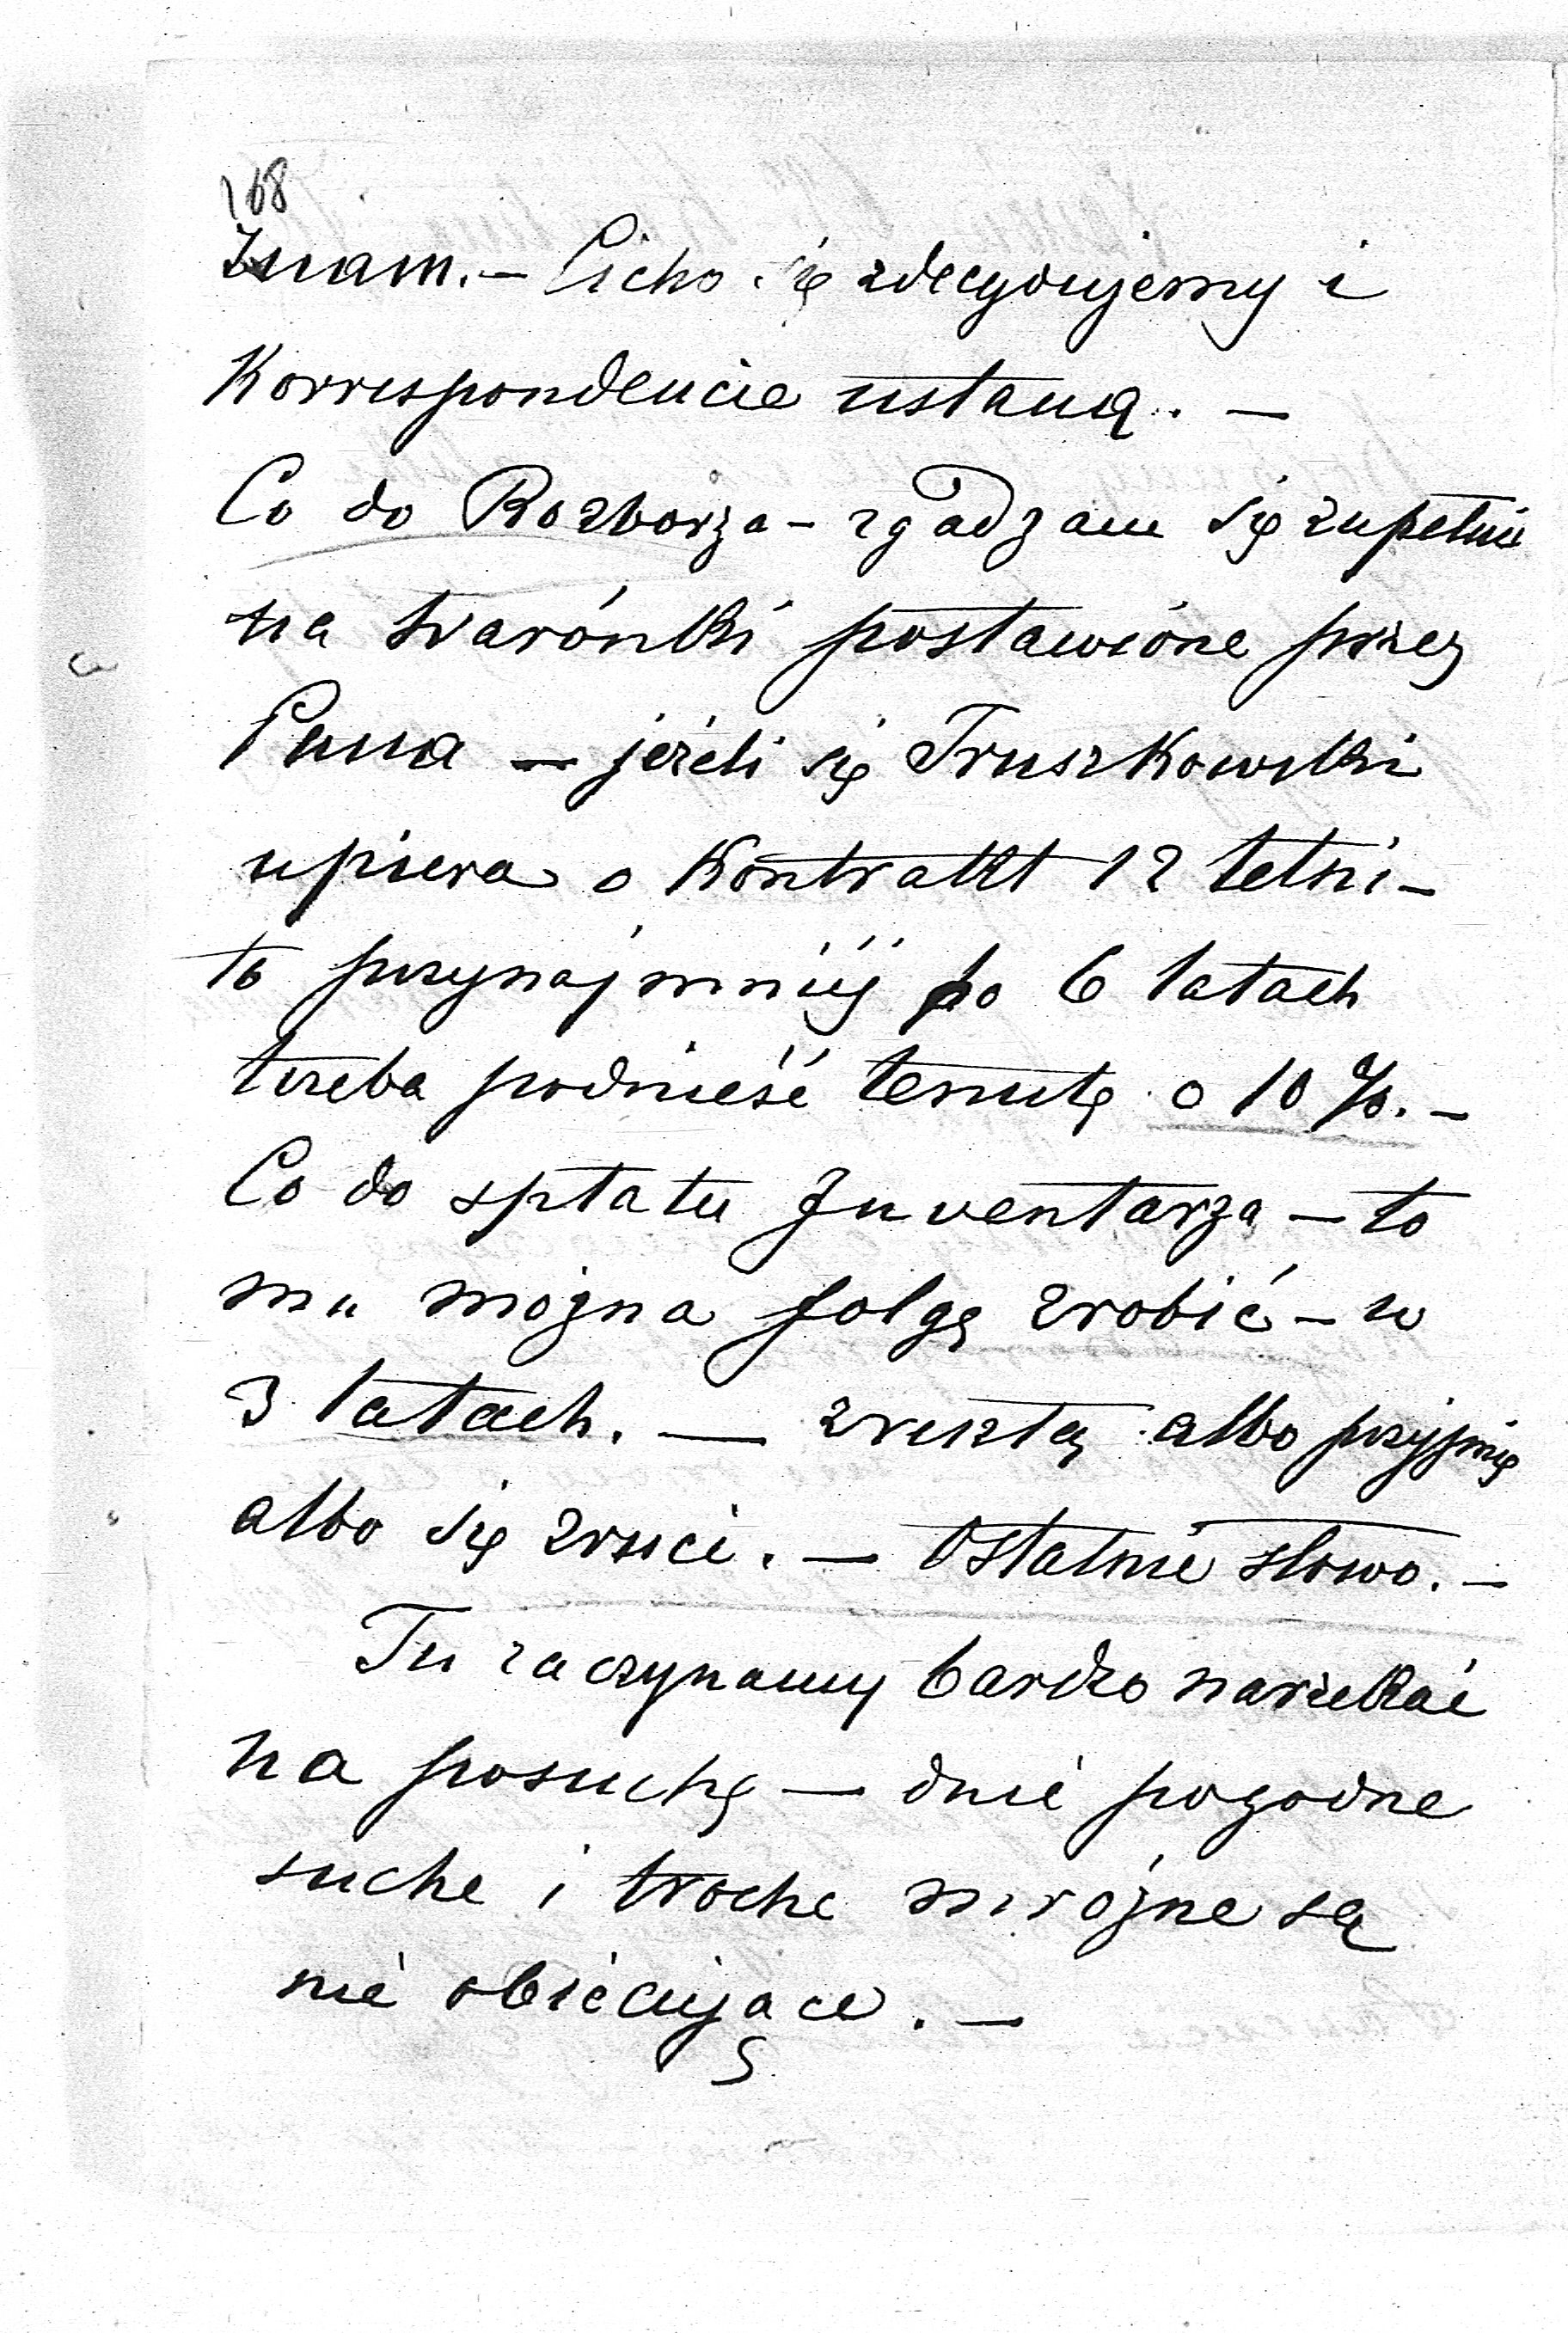 168
Znam. — Cicho się zdecydujemy i
Korrespondencie ustaną. —
Co do Rozborza — zgadzam się zupełnie
na warónki postawióne przez
Pana — jeżeli się Truszkowski
upiera o Kontrakt 12 letni —
to przynajmniéj po 6 latach
trzeba podnieść tenutę o 10 %. —
Co do spłatu Inventarza — to
mu można folgę zrobić — w
3 latach. — zresztą albo przyjmie
albo się zruci. — Ostatnie słowo. —
Tu zaczynamy bardzo narzekać
na posuchę — dnie pogodne
suche i troche mroźne są
nie obiecujące. —
S